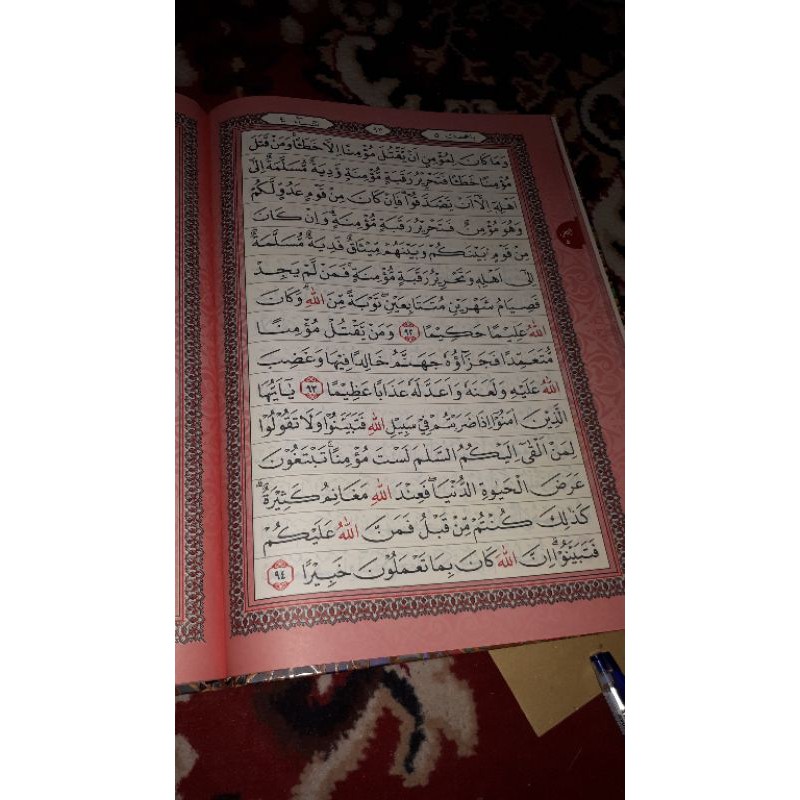 والمحصنات ٥
٩٣
النساء ٤
وَمَا كَانَ لِمُؤْمِنٍ اَنْ يَّقْتُلَ مُؤْمِنًا اِلَّا خَطَـًٔا وَمَنْ قَتَلَ
مُؤْمِنًا خَطَـًٔا فَتَحْرِيْرُ رَقَبَةٍ مُّؤْمِنَةٍ وَّدِيَةٌ مُّسَلَّمَةٌ اِلٰٓى
اَهْلِهٖٓ اِلَّآ اَنْ يَّصَّدَّقُوْا فَاِنْ كَانَ مِنْ قَوْمٍ عَدُوٍّ لَّكُمْ
وَهُوَ مُؤْمِنٌ فَتَحْرِيْرُ رَقَبَةٍ مُّؤْمِنَةٍ وَاِنْ كَانَ
مِنْ قَوْمٍ بَيْنَكُمْ وَبَيْنَهُمْ مِّيْثَاقٌ فَدِيَةٌ مُّسَلَّمَةٌ
اِلٰٓى اَهْلِهٖ وَتَحْرِيْرُ رَقَبَةٍ مُّؤْمِنَةٍ فَمَنْ لَّمْ يَجِدْ
فَصِيَامُ شَهْرَيْنِ مُتَتَابِعَيْنِ تَوْبَةً مِّنَ اللّٰهِ وَكَانَ
اللّٰهُ عَلِيْمًا حَكِيْمًا ٩٢ وَمَنْ يَّقْتُلْ مُؤْمِنًا
مُّتَعَمِّدًا فَجَزَآؤُهٗ جَهَنَّمُ خَالِدًا فِيْهَا وَغَضِبَ
اللّٰهُ عَلَيْهِ وَلَعَنَهٗ وَاَعَدَّ لَهٗ عَذَابًا عَظِيْمًا ٩٣ يٰٓاَيُّهَا
الَّذِيْنَ اٰمَنُوْٓا اِذَا ضَرَبْتُمْ فِيْ سَبِيْلِ اللّٰهِ فَتَبَيَّنُوْا وَلَا تَقُوْلُوْا
لِمَنْ اَلْقٰٓى اِلَيْكُمُ السَّلٰمَ لَسْتَ مُؤْمِنًا تَبْتَغُوْنَ
عَرَضَ الْحَيٰوةِ الدُّنْيَا فَعِنْدَ اللّٰهِ مَغَانِمُ كَثِيْرَةٌ
كَذٰلِكَ كُنْتُمْ مِّنْ قَبْلُ فَمَنَّ اللّٰهُ عَلَيْكُمْ
فَتَبَيَّنُوْا اِنَّ اللّٰهَ كَانَ بِمَا تَعْمَلُوْنَ خَبِيْرًا ٩٤